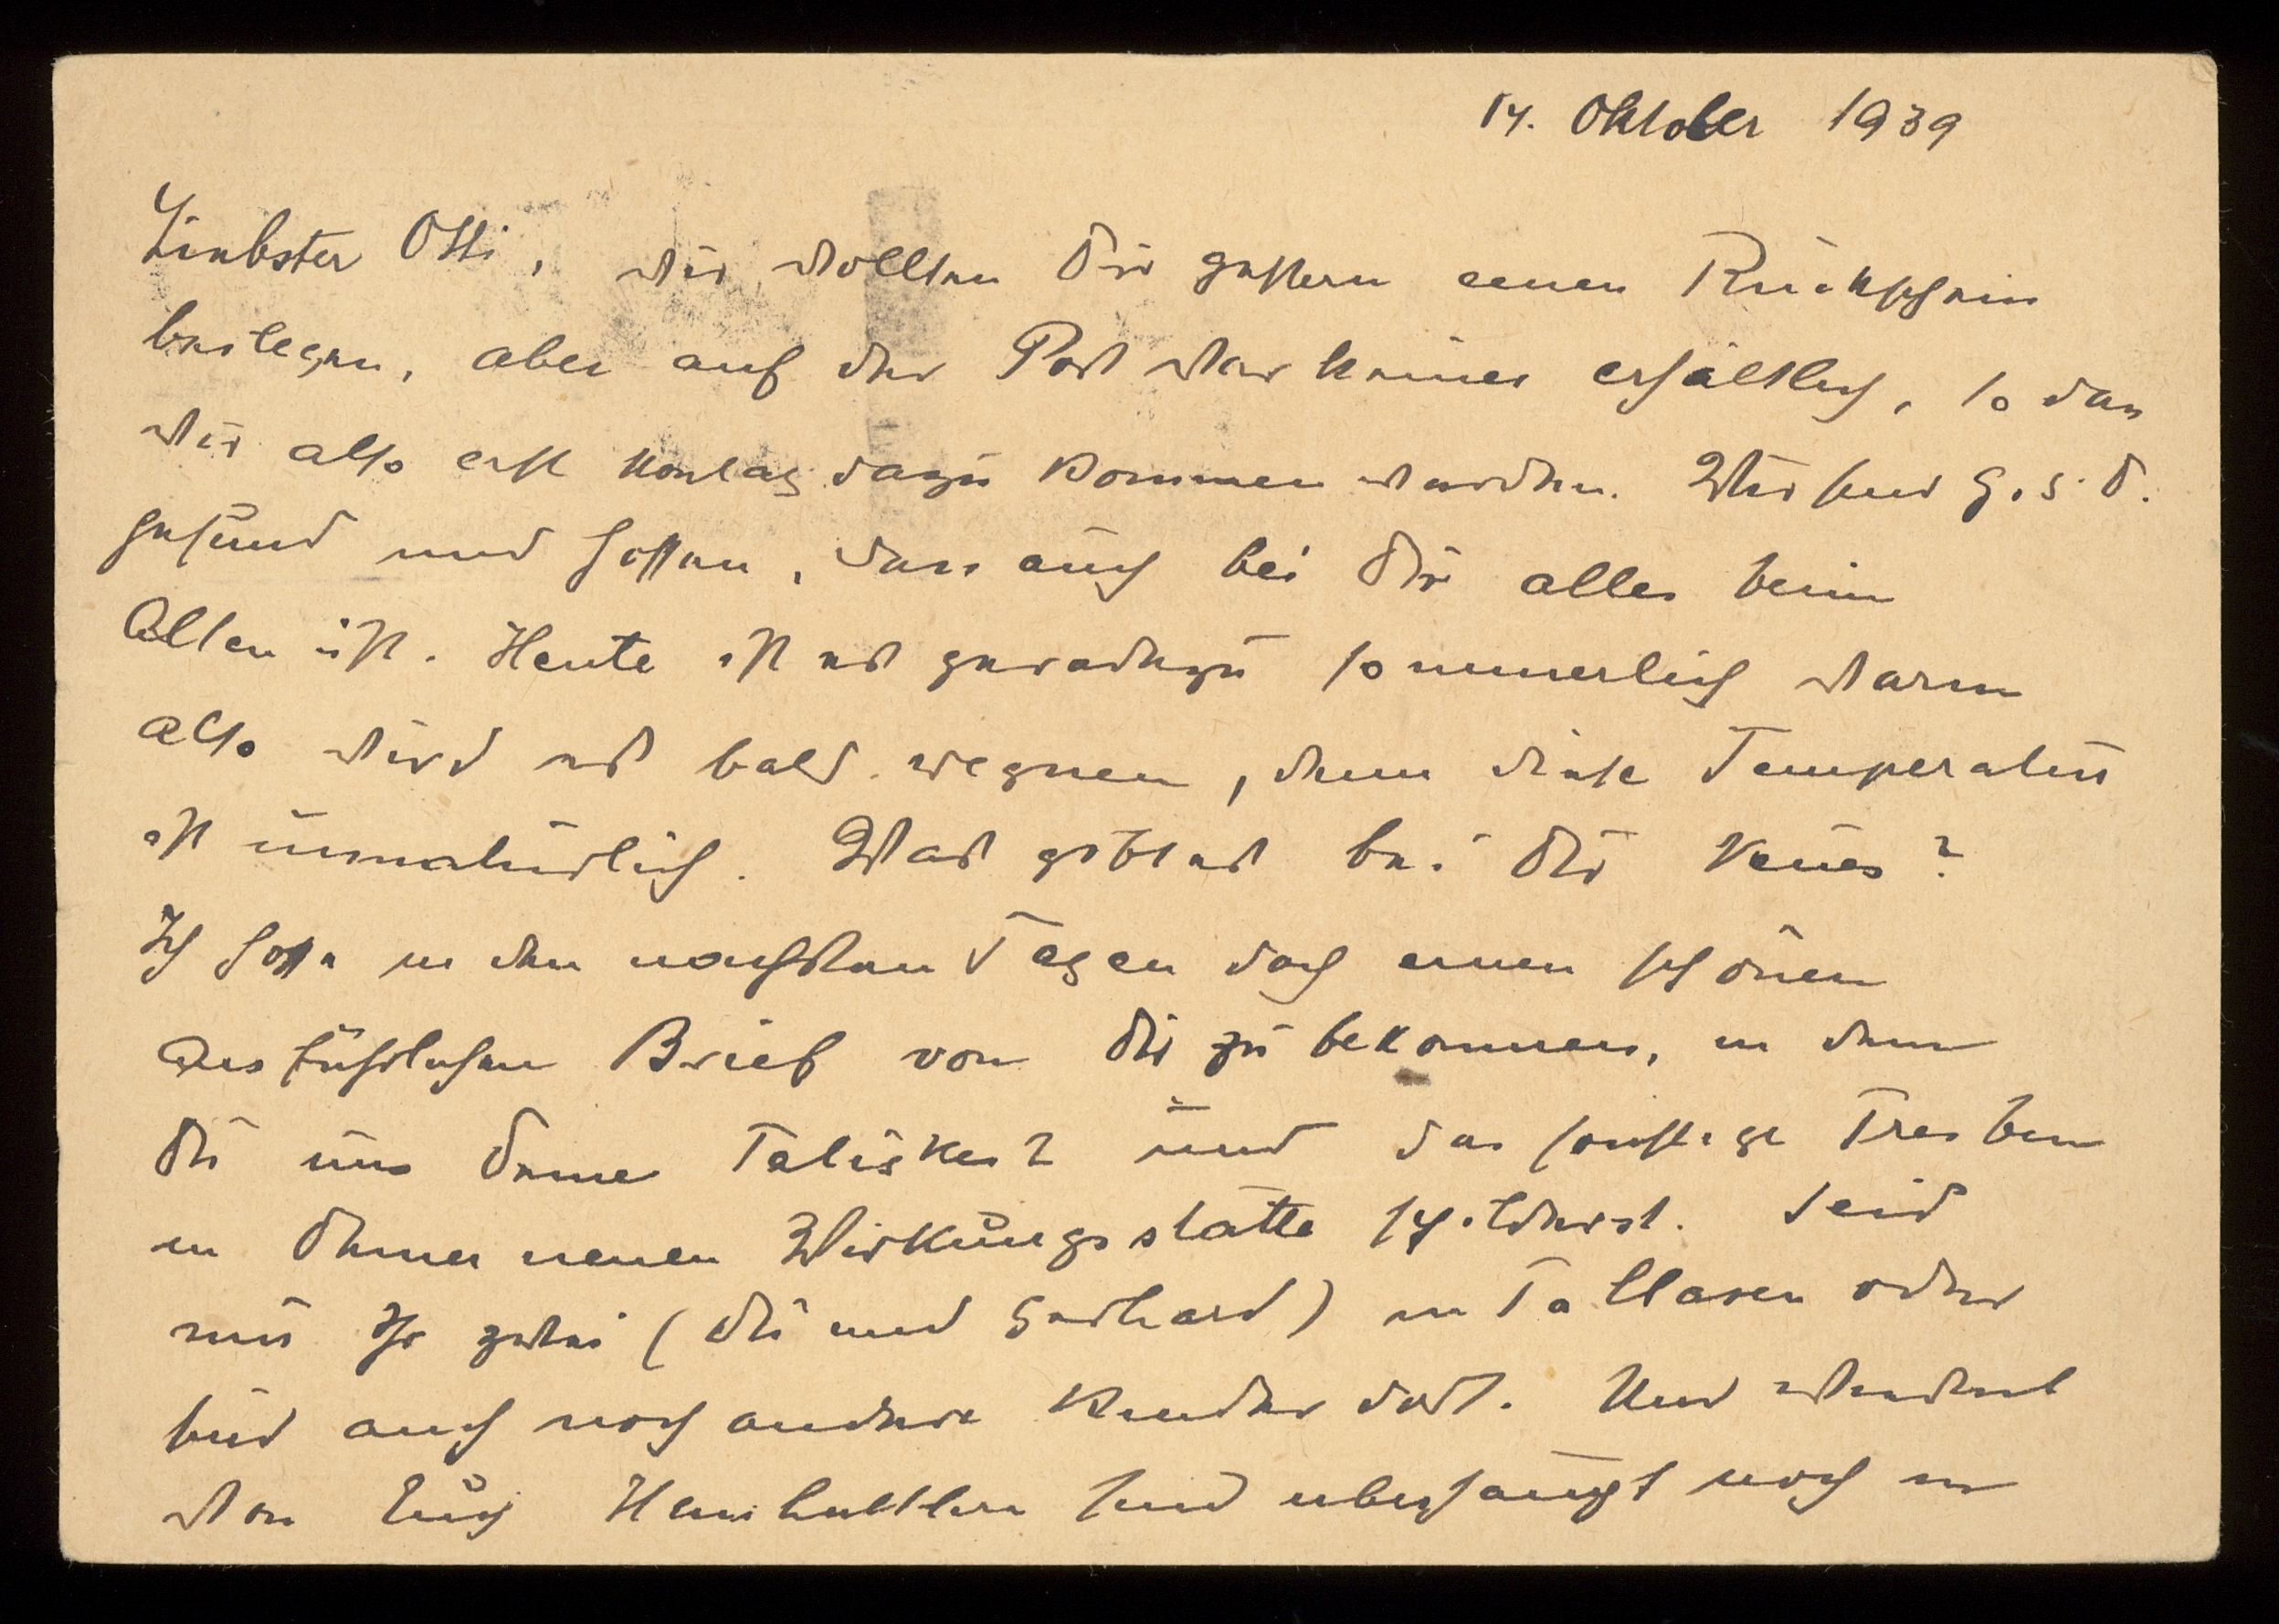 14. Oktober 1939
Liebster Otti, wir wollten Dir gestern einen Rückschein
beilegen, aber auf der Post war keiner erhältlich, so dass
wir also erst Montag dazu kommen werden. Wir sind G.s.D.
gesund und hoffen, dass auch bei Dir alles beim
Alten ist. Heute ist es geradezu sommerlich warm
also wird es bald regnen, denn diese Temperatur
ist unnatürlich. Was gibt es bei Dir Neues?
Ich hoffe in den nächsten Tagen doch einen schönen
ausführlichen Brief von Dir zu bekommen, in dem
Du uns Deine Tätigkeit und das sonstige Treiben
in Deiner neuen Wirkungsstätte schilderst. Seid
nur Ihr zwei (Du und Gerhard) in Tollaren oder
sind auch noch andere Kinder dort. Und
von Euch sind überhaupt noch in